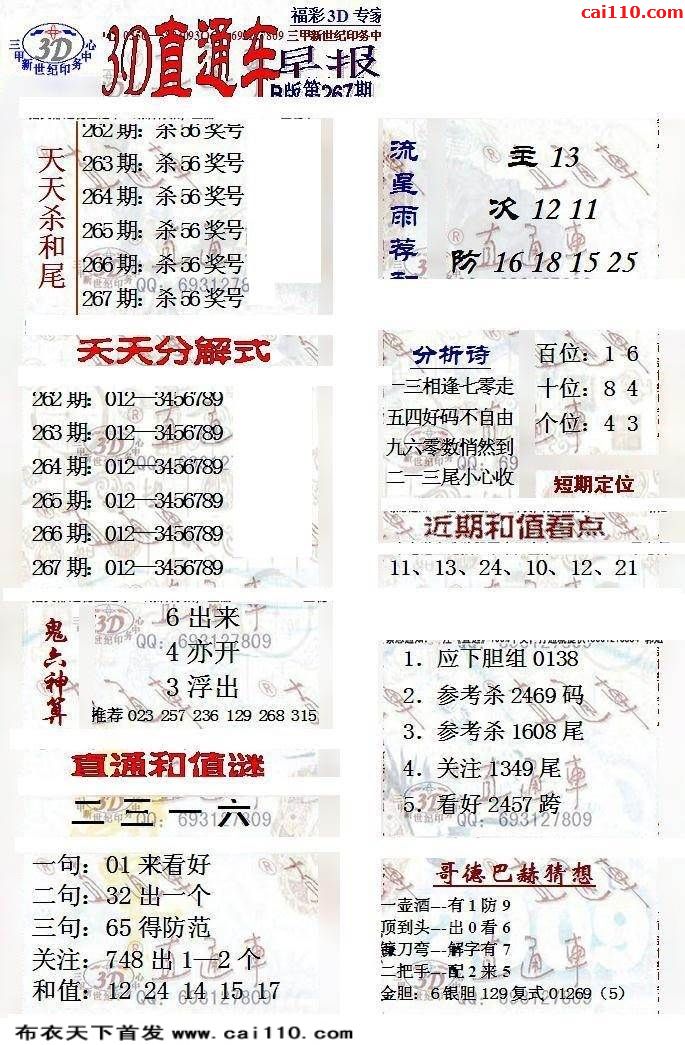 cai110.com
福彩3D 专家
三甲新世纪印务中心
3D
3D直通车
三甲新世纪印务中
早报
B版第267期
天天杀和尾
262 期: 杀 56 奖号
263 期: 杀 56 奖号
264 期: 杀 56 奖号
265 期: 杀 56 奖号
266 期: 杀 56 奖号
267 期: 杀 56 奖号
天天分解式
262 期: 012—3456789
263 期: 012—3456789
264 期: 012—3456789
265 期: 012—3456789
266 期: 012—3456789
267 期: 012—3456789
鬼六神算
6 出来
4 亦开
3 浮出
推荐 023 257 236 129 268 315
QQ: 693127809
直通和值谜
二 三 一 六
一句: 01 来看好
二句: 32 出一个
三句: 65 得防范
关注: 748 出 1—2 个
和值: 12 24 14 15 17
流星雨荐
主 13
次 12 11
防 16 18 15 25
分析诗
一三相逢七零走
五四好码不自由
九六零数悄然到
二一三尾小心收
百位: 1 6
十位: 8 4
个位: 4 3
短期定位
近期和值看点
11、13、24、10、12、21
1. 应下胆组 0138
2. 参考杀 2469 码
3. 参考杀 1608 尾
4. 关注 1349 尾
5. 看好 2457 跨
哥德巴赫猜想
一壶酒---有 1 防 9
顶到头---出 0 看 6
镰刀弯---解字有 7
二把手---配 2 来 5
金胆: 6 银胆 129 复式 01269（5）
布衣天下首发 www.cai110.com